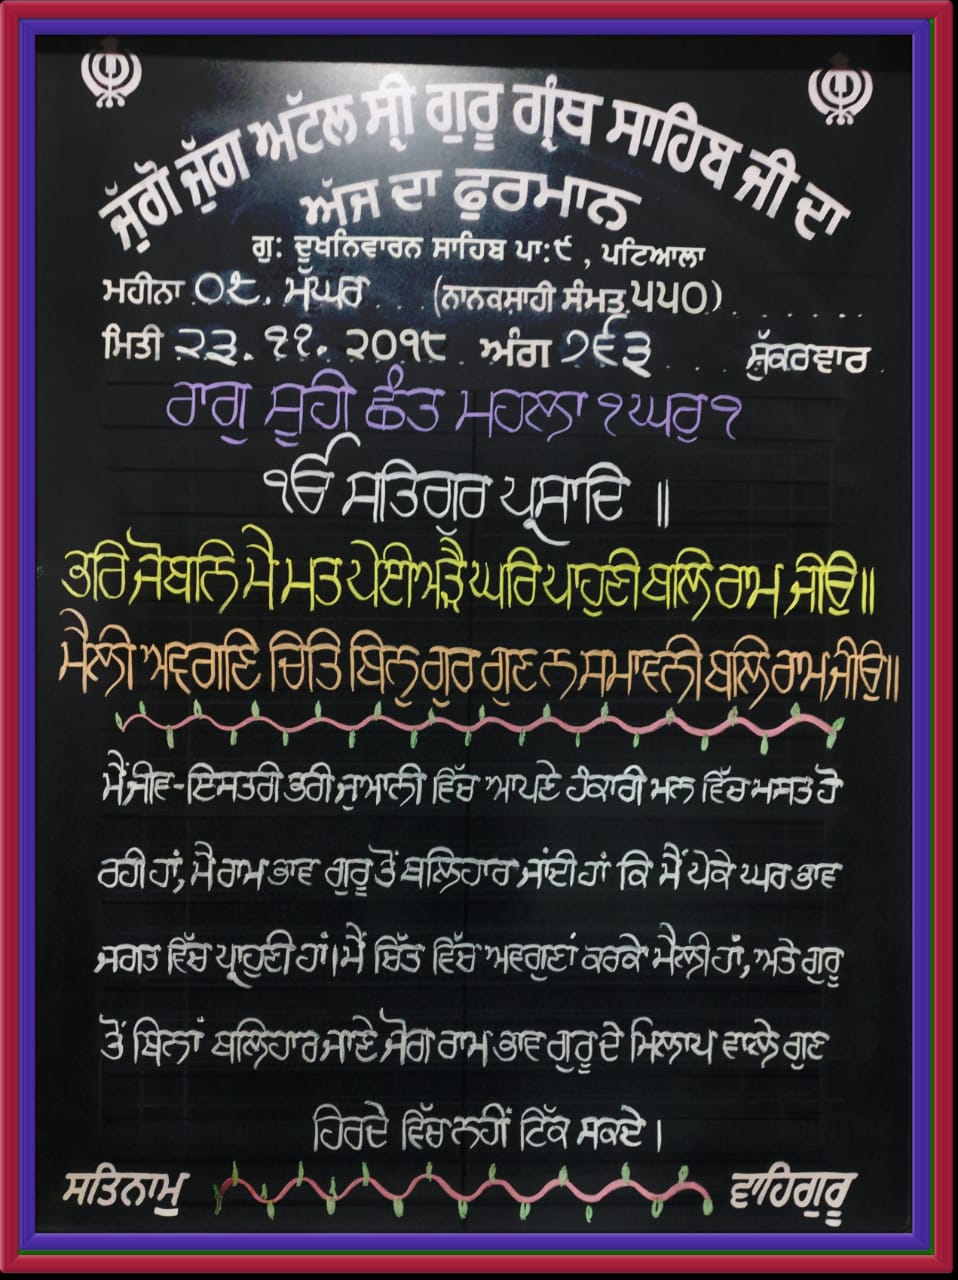 ਜੁੱਗੋ ਜੁੱਗ ਅਟੱਲ ਸ੍ਰੀ ਗੁਰੂ ਗ੍ਰੰਥ ਸਾਹਿਬ ਜੀ ਦਾ
ਅੱਜ ਦਾ ਫੁਰਮਾਨ
ਗੁ: ਦੂਖਨਿਵਾਰਨ ਸਾਹਿਬ ਪਾ:੯ , ਪਟਿਆਲਾ
ਮਹੀਨਾ ੦੮. ਮੱਘਰ (ਨਾਨਕਸ਼ਾਹੀ ਸੰਮਤ ੫੫੦)
ਮਿਤੀ ੨੩.੧੧.੨੦੧੮ ਅੰਗ ੭੬੩ ਸ਼ੁੱਕਰਵਾਰ
ਰਾਗੁ ਸੂਹੀ ਛੰਤ ਮਹਲਾ ੧ ਘਰੁ ੧
ੴ ਸਤਿਗੁਰ ਪ੍ਰਸਾਦਿ ॥
ਭਰਿ ਜੋਬਨਿ ਮੈ ਮਤ ਪੇਈਅੜੈ ਘਰਿ ਪਾਹੁਣੀ ਬਲਿ ਰਾਮ ਜੀਉ ॥
ਮੈਲੀ ਅਵਗਣਿ ਚਿਤਿ ਬਿਨੁ ਗੁਰ ਗੁਣ ਨ ਸਮਾਵਨੀ ਬਲਿ ਰਾਮ ਜੀਉ ॥
ਮੈਂ ਜੀਵ-ਇਸਤਰੀ ਭਰੀ ਜੁਆਨੀ ਵਿੱਚ ਆਪਣੇ ਹੰਕਾਰੀ ਮਨ ਵਿੱਚ ਮਸਤ ਹੋ
ਰਹੀ ਹਾਂ, ਮੈ ਰਾਮ ਭਾਵ ਗੁਰੂ ਤੋਂ ਬਲਿਹਾਰ ਜਾਂਦੀ ਹਾਂ ਕਿ ਮੈਂ ਪੇਕੇ ਘਰ ਭਾਵ
ਜਗਤ ਵਿੱਚ ਪ੍ਰਾਹੁਣੀ ਹਾਂ। ਮੈਂ ਚਿੱਤ ਵਿੱਚ ਅਵਗੁਣਾਂ ਕਰਕੇ ਮੈਲੀ ਹਾਂ, ਅਤੇ ਗੁਰੂ
ਤੋਂ ਬਿਨਾਂ ਬਲਿਹਾਰ ਜਾਣੇ ਜੋਗ ਰਾਮ ਭਾਵ ਗੁਰੂ ਦੇ ਮਿਲਾਪ ਵਾਲੇ ਗੁਣ
ਹਿਰਦੇ ਵਿੱਚ ਨਹੀਂ ਟਿੱਕ ਸਕਦੇ।
ਸਤਿਨਾਮੁ ਵਾਹਿਗੁਰੂ